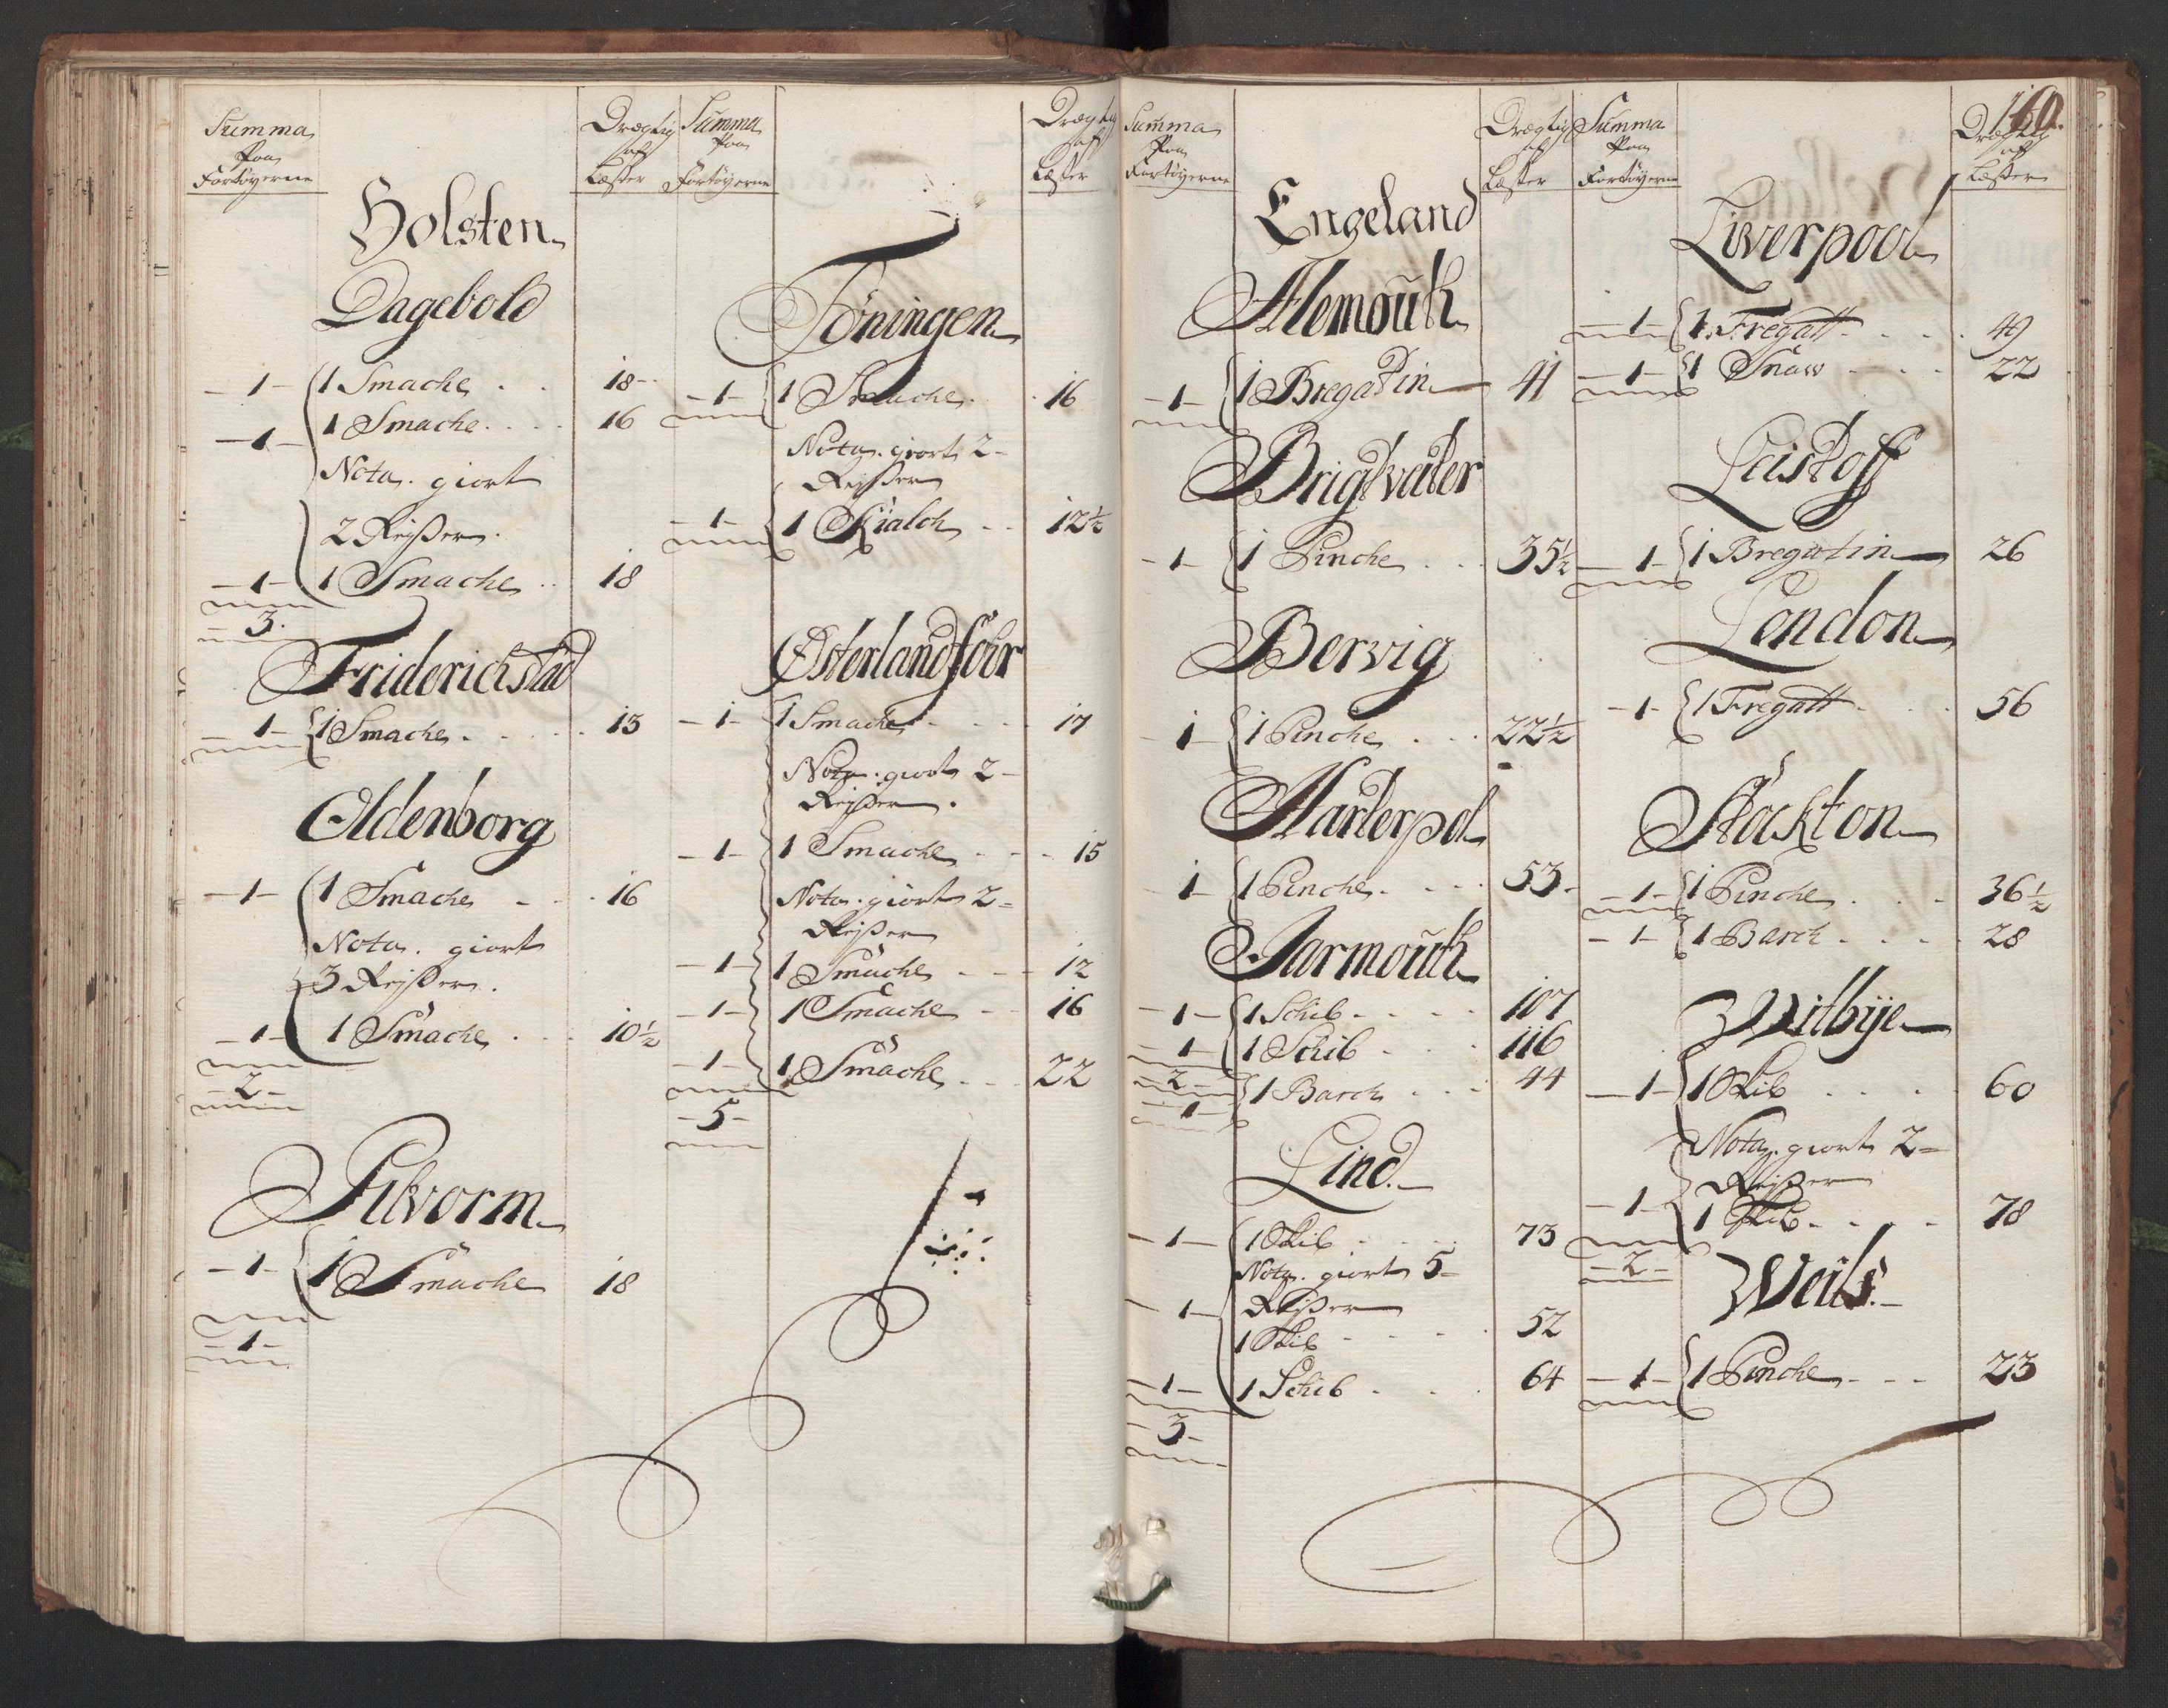 Summa
Paa
Fartøyerne
Drægtig
af
Læster
Holsten
Dagebold
1 1 Smache 18
1 1 Smache 16
Nota. giort
2 Reisser
1 1 Smache 18
3
Friderichstad
1 1 Smache 13
Oldenborg
1 1 Smache 16
Nota. giort
3 Reisser
1 1 Smache 10½
2
Pilworm
1 1 Smache 18
1
Summa
Paa
Fartøyerne
Drægtig
af
Læster
Töningen
1 1 Smache 16
Nota. giort 2
Reisser
1 1 Kialch 12½
Østerlandföhr
1 1 Smache 17
Nota. giort 2
Reisser
1 1 Smache 15
Nota. giort 2
Reisser
1 1 Smache 12
1 1 Smache 16
1 1 Smache 22
5
Summa
Paa
Fartøyerne
Drægtig
af
Læster
Engeland
Alemouth
1 1 Bregatin 41
Brigwater
1 1 Pinche 35½
Bervig
1 1 Pinche 22½
Harterpol
1 1 Pinche 53
Jarmouth
1 1 Schib 107
1 1 Schib 116
2
1 1 Barch 44
Lind
1 1 Skib 73
Nota. giort 5
Reisser
1 1 Skib 52
1 1 Schib 64
3
160.
Summa
Paa
Fartøyerne
Drægtig
af
Læster
Liverpool
1 1 Fregatt 49
1 1 Snaw 22
Leistoff
1 1 Bregatin 26
London
1 1 Fregatt 56
Stockton
1 1 Pinche 36½
1 1 Barch 28
Witbye
1 1 Skib 60
Nota. giort 2
Reisser
1 1 Skib 78
2
Weils
1 1 Pinche 23